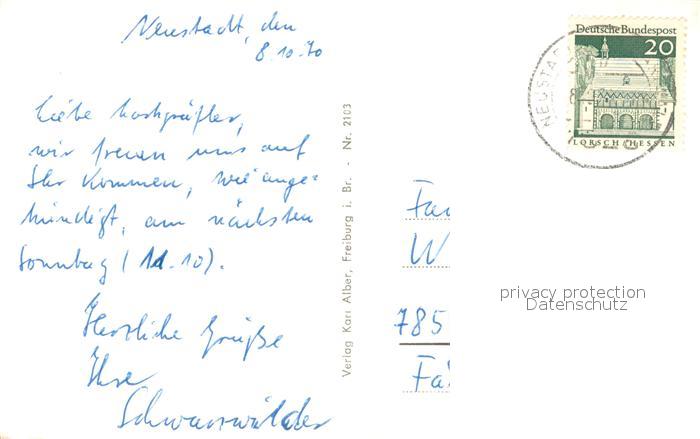 Neustadt, den
8.10.70
Liebe Markgräfler,
wir freuen uns auf
Ihr Kommen, wie ange=
kündigt, am nächsten
Sonntag (11.10).
Herzliche Grüße
Ihre
Schwarzwälder
Verlag Karl Alber, Freiburg i. Br. - Nr. 2103
Deutsche Bundespost
20
LORSCH/HESSEN
NEUSTADT
Fa
W
785
Fa
privacy protection
Datenschutz